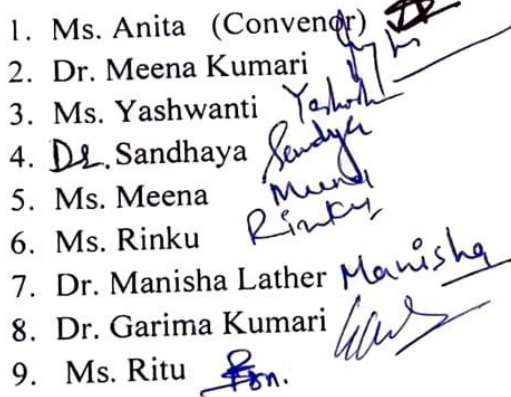 1. Ms. Anita (Convenor)
2. Dr. Meena Kumari
3. Ms. Yashwanti
4. Dr. Sandhaya Sandya
5. Ms. Meena Meena
6. Ms. Rinku Rinku
7. Dr. Manisha Lather Manisha
8. Dr. Garima Kumari
9. Ms. Ritu